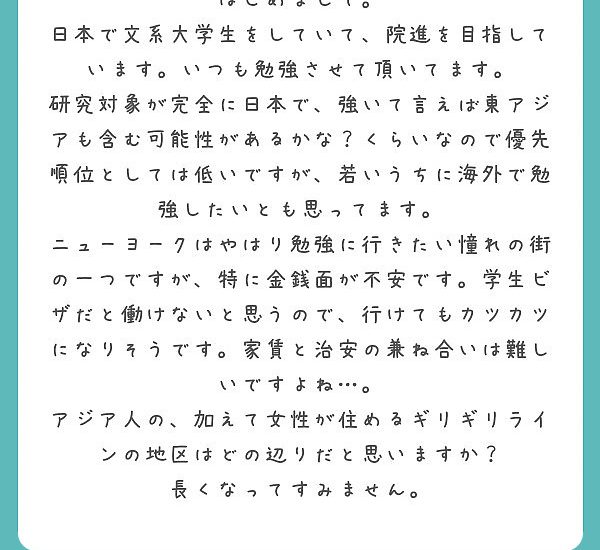 はじめまして。
日本で文系大学生をしていて、院進を目指して
います。いつも勉強させて頂いてます。
研究対象が完全に日本で、強いて言えば東アジ
アも含む可能性があるかな？くらいなので優先
順位としては低いですが、若いうちに海外で勉
強したいとも思ってます。
ニューヨークはやはり勉強に行きたい憧れの街
の一つですが、特に金銭面が不安です。学生ビ
ザだと働けないと思うので、行けてもカツカツ
になりそうです。家賃と治安の兼ね合いは難し
いですよね…。
アジア人の、加えて女性が住めるギリギリライ
ンの地区はどの辺りだと思いますか？
長くなってすみません。